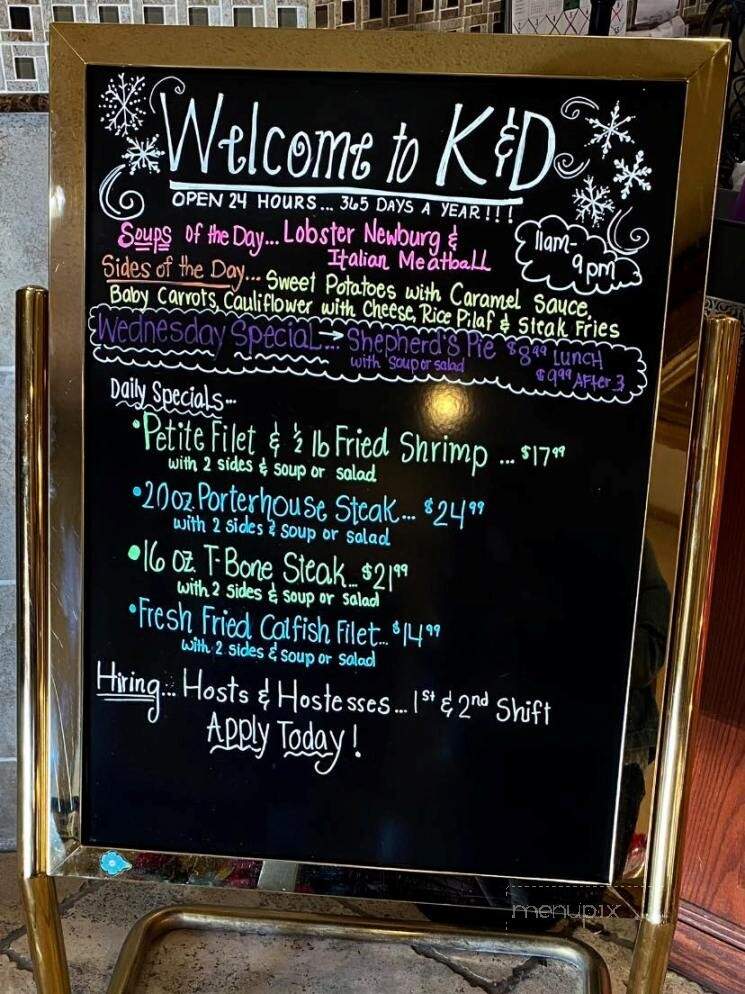 Welcome to K&D
OPEN 24 HOURS... 365 DAYS A YEAR!!!
Soups of the Day... Lobster Newburg &
Italian Meatball
11am-
9pm
Sides of the Day... Sweet Potatoes with Caramel Sauce,
Baby Carrots, Cauliflower with Cheese, Rice Pilaf & Steak Fries
Wednesday Special... → Shepherd's Pie $8.99 LUNCH
with soup or salad $9.99 After 3
Daily Specials...
•Petite Filet & ½ lb Fried Shrimp ... $17.99
with 2 sides & soup or salad
•20 oz. Porterhouse Steak... $24.99
with 2 sides & soup or salad
•16 oz. T-Bone Steak... $21.99
with 2 sides & soup or salad
•Fresh Fried Catfish Filet... $14.99
with 2 sides & soup or salad
Hiring... Hosts & Hostesses... 1st & 2nd Shift
Apply Today!
menupix